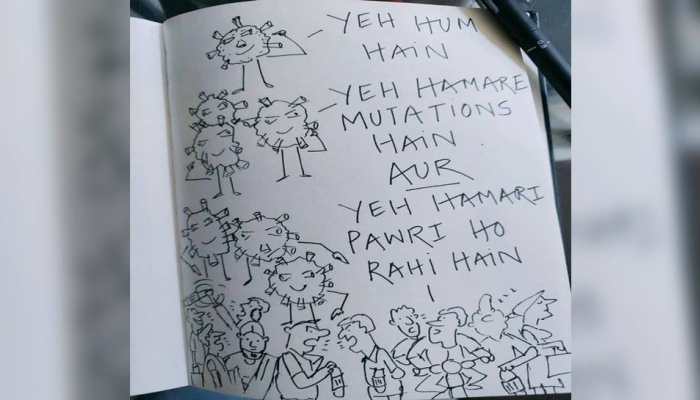 YEH HUM
HAIN
YEH HAMARE
MUTATIONS
HAIN
AUR
YEH HAMARI
PAWRI HO
RAHI HAIN